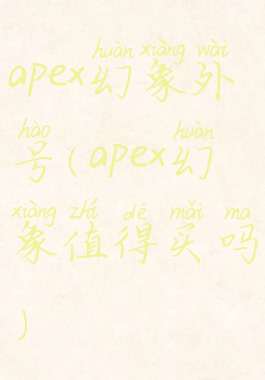 huàn xiàng wài
apex幻象外
hào huàn
号(apex幻
xiàng zhí dé mǎi ma
象值得买吗
)